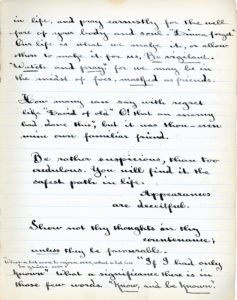 in life, and pray earnestly for the wel-
fare of your body and soul. "Dinna forget"
Our life is what we make it, or allow
others to make it for us, Be vigilant.
Watch and pray for we may be in
the midst of foes, masked as friends.
How many can say with regret
like "David of old" O! that an enemy
had done this, but it was thou— even
mine own familiar friend.
Be rather suspicious, than too
credulous. You will find it the
safest path in life.
Appearances
are deceitful.
Show not thy thoughts on thy
countenance;
unless they be favourable.
"If I had only
known" What a significance there is in
those few words, "Know, and be known".